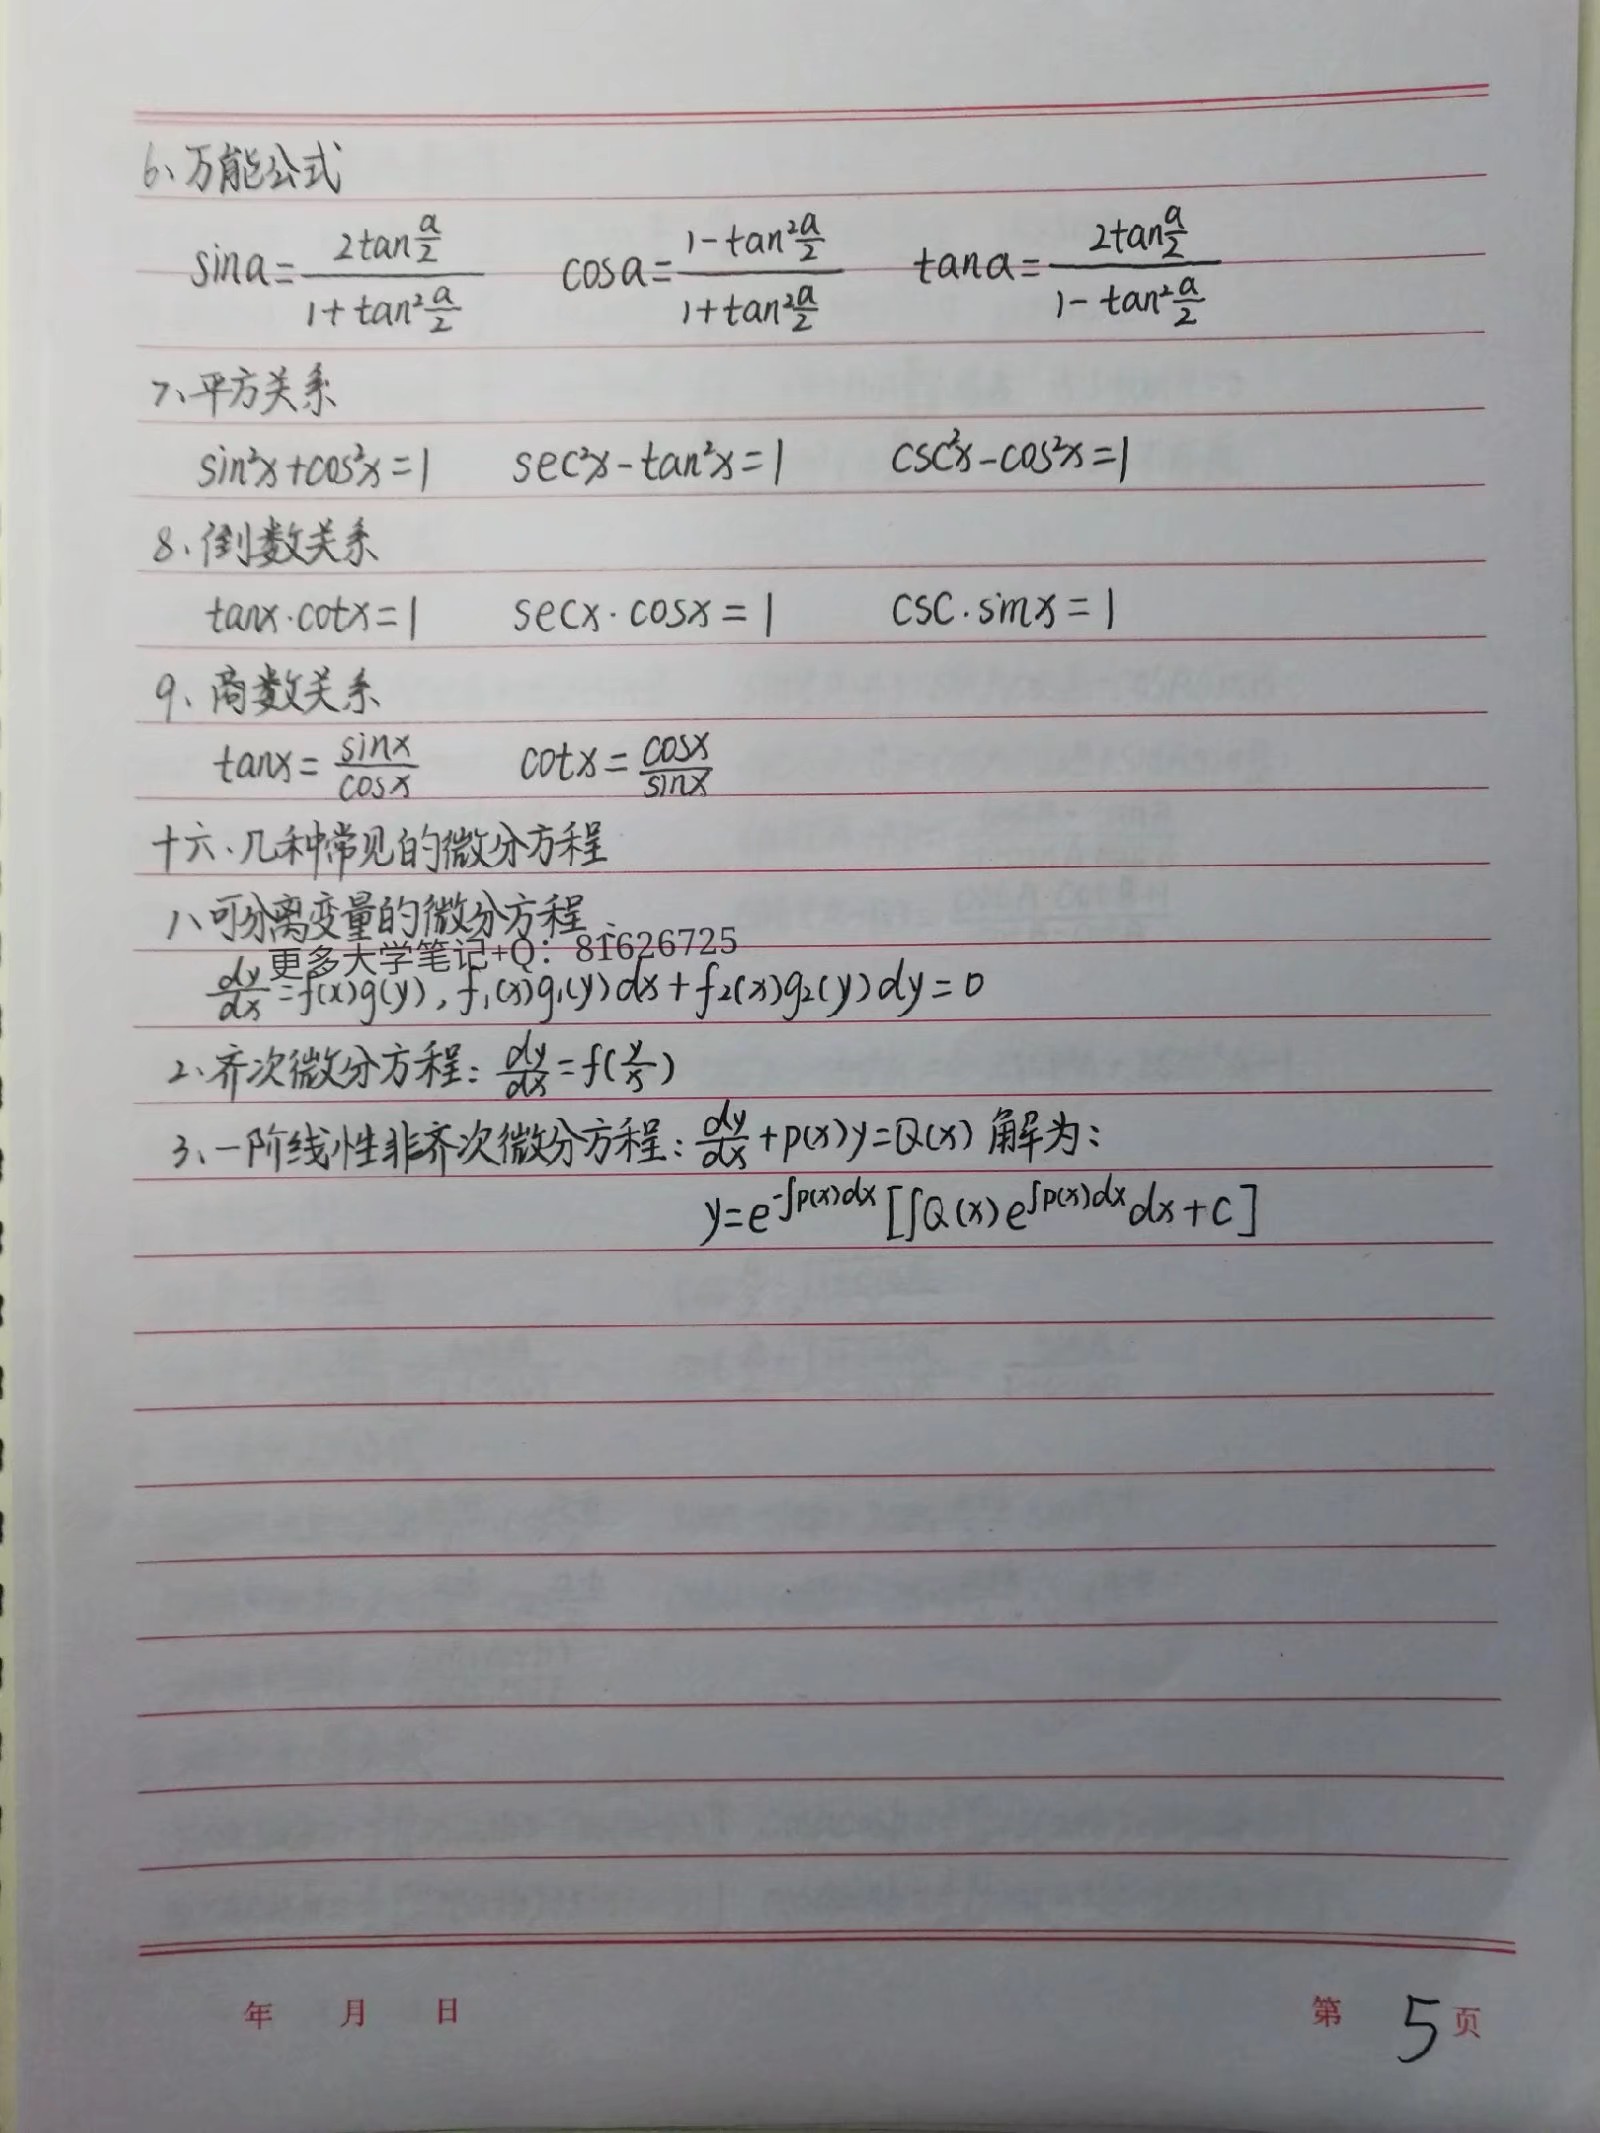 6、万能公式
sina=2tan a/2 / 1+tan² a/2　cosa=1-tan² a/2 / 1+tan² a/2　tana=2tan a/2 / 1-tan² a/2
7、平方关系
sin²x+cos²x=1　sec²x-tan²x=1　csc²x-cos²x=1
8、倒数关系
tanx·cotx=1　secx·cosx=1　csc·sinx=1
9、商数关系
tanx=sinx/cosx　cotx=cosx/sinx
十六、几种常见的微分方程
1、可分离变量的微分方程:
更多大学笔记+Q：81626725
dy/dx=f(x)g(y),f₁(x)g₁(y)dx+f₂(x)g₂(y)dy=0
2、齐次微分方程:dy/dx=f(y/x)
3、一阶线性非齐次微分方程:dy/dx+p(x)y=Q(x)解为:
y=e^{-∫p(x)dx}[∫Q(x)e^{∫p(x)dx}dx+c]
年　月　日　第5页